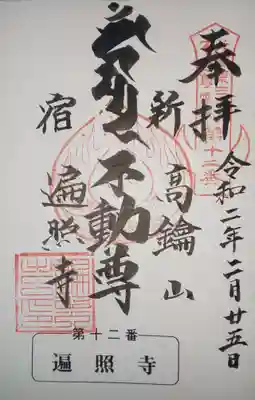 奉拝
令和二年二月廿五日
新高鑰山
不動尊
宿遍照寺
第十二番
遍照寺